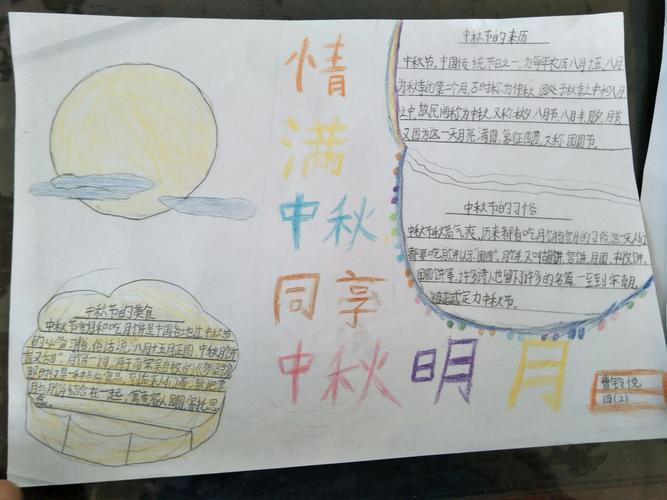 情
满
中秋
同享
中秋明月
中秋节的来历
中秋节,中国传统节日之一,为每年农历八月十五,八月
为秋季的第二个月,古时称为仲秋,因处于秋季之中和八月
之中,故民间称为中秋,又称秋夕,八月节,八月半,
又因为这一天月亮满圆,象征团圆,又称团圆节。
中秋节的习俗
中秋节秋高气爽,历来都有吃月饼赏月的习俗这一天人们
都要吃月饼以示"团圆"。月饼,又叫胡饼,宫饼,月团,
团圆饼等,许多诗人也留下许多的名篇,一至到宋朝,
定为中秋节。
中秋节的美食
中秋节赏月和吃月饼是中国各地过中秋节
的必备习俗,俗话说:"八月十五月正圆,中秋月饼
香又甜"。月饼一词,
那时仅是一种点心食品,到后来人们渐渐把赏
月与月饼结合在一起,寓意家人团圆,寄托思
念。
四(2)